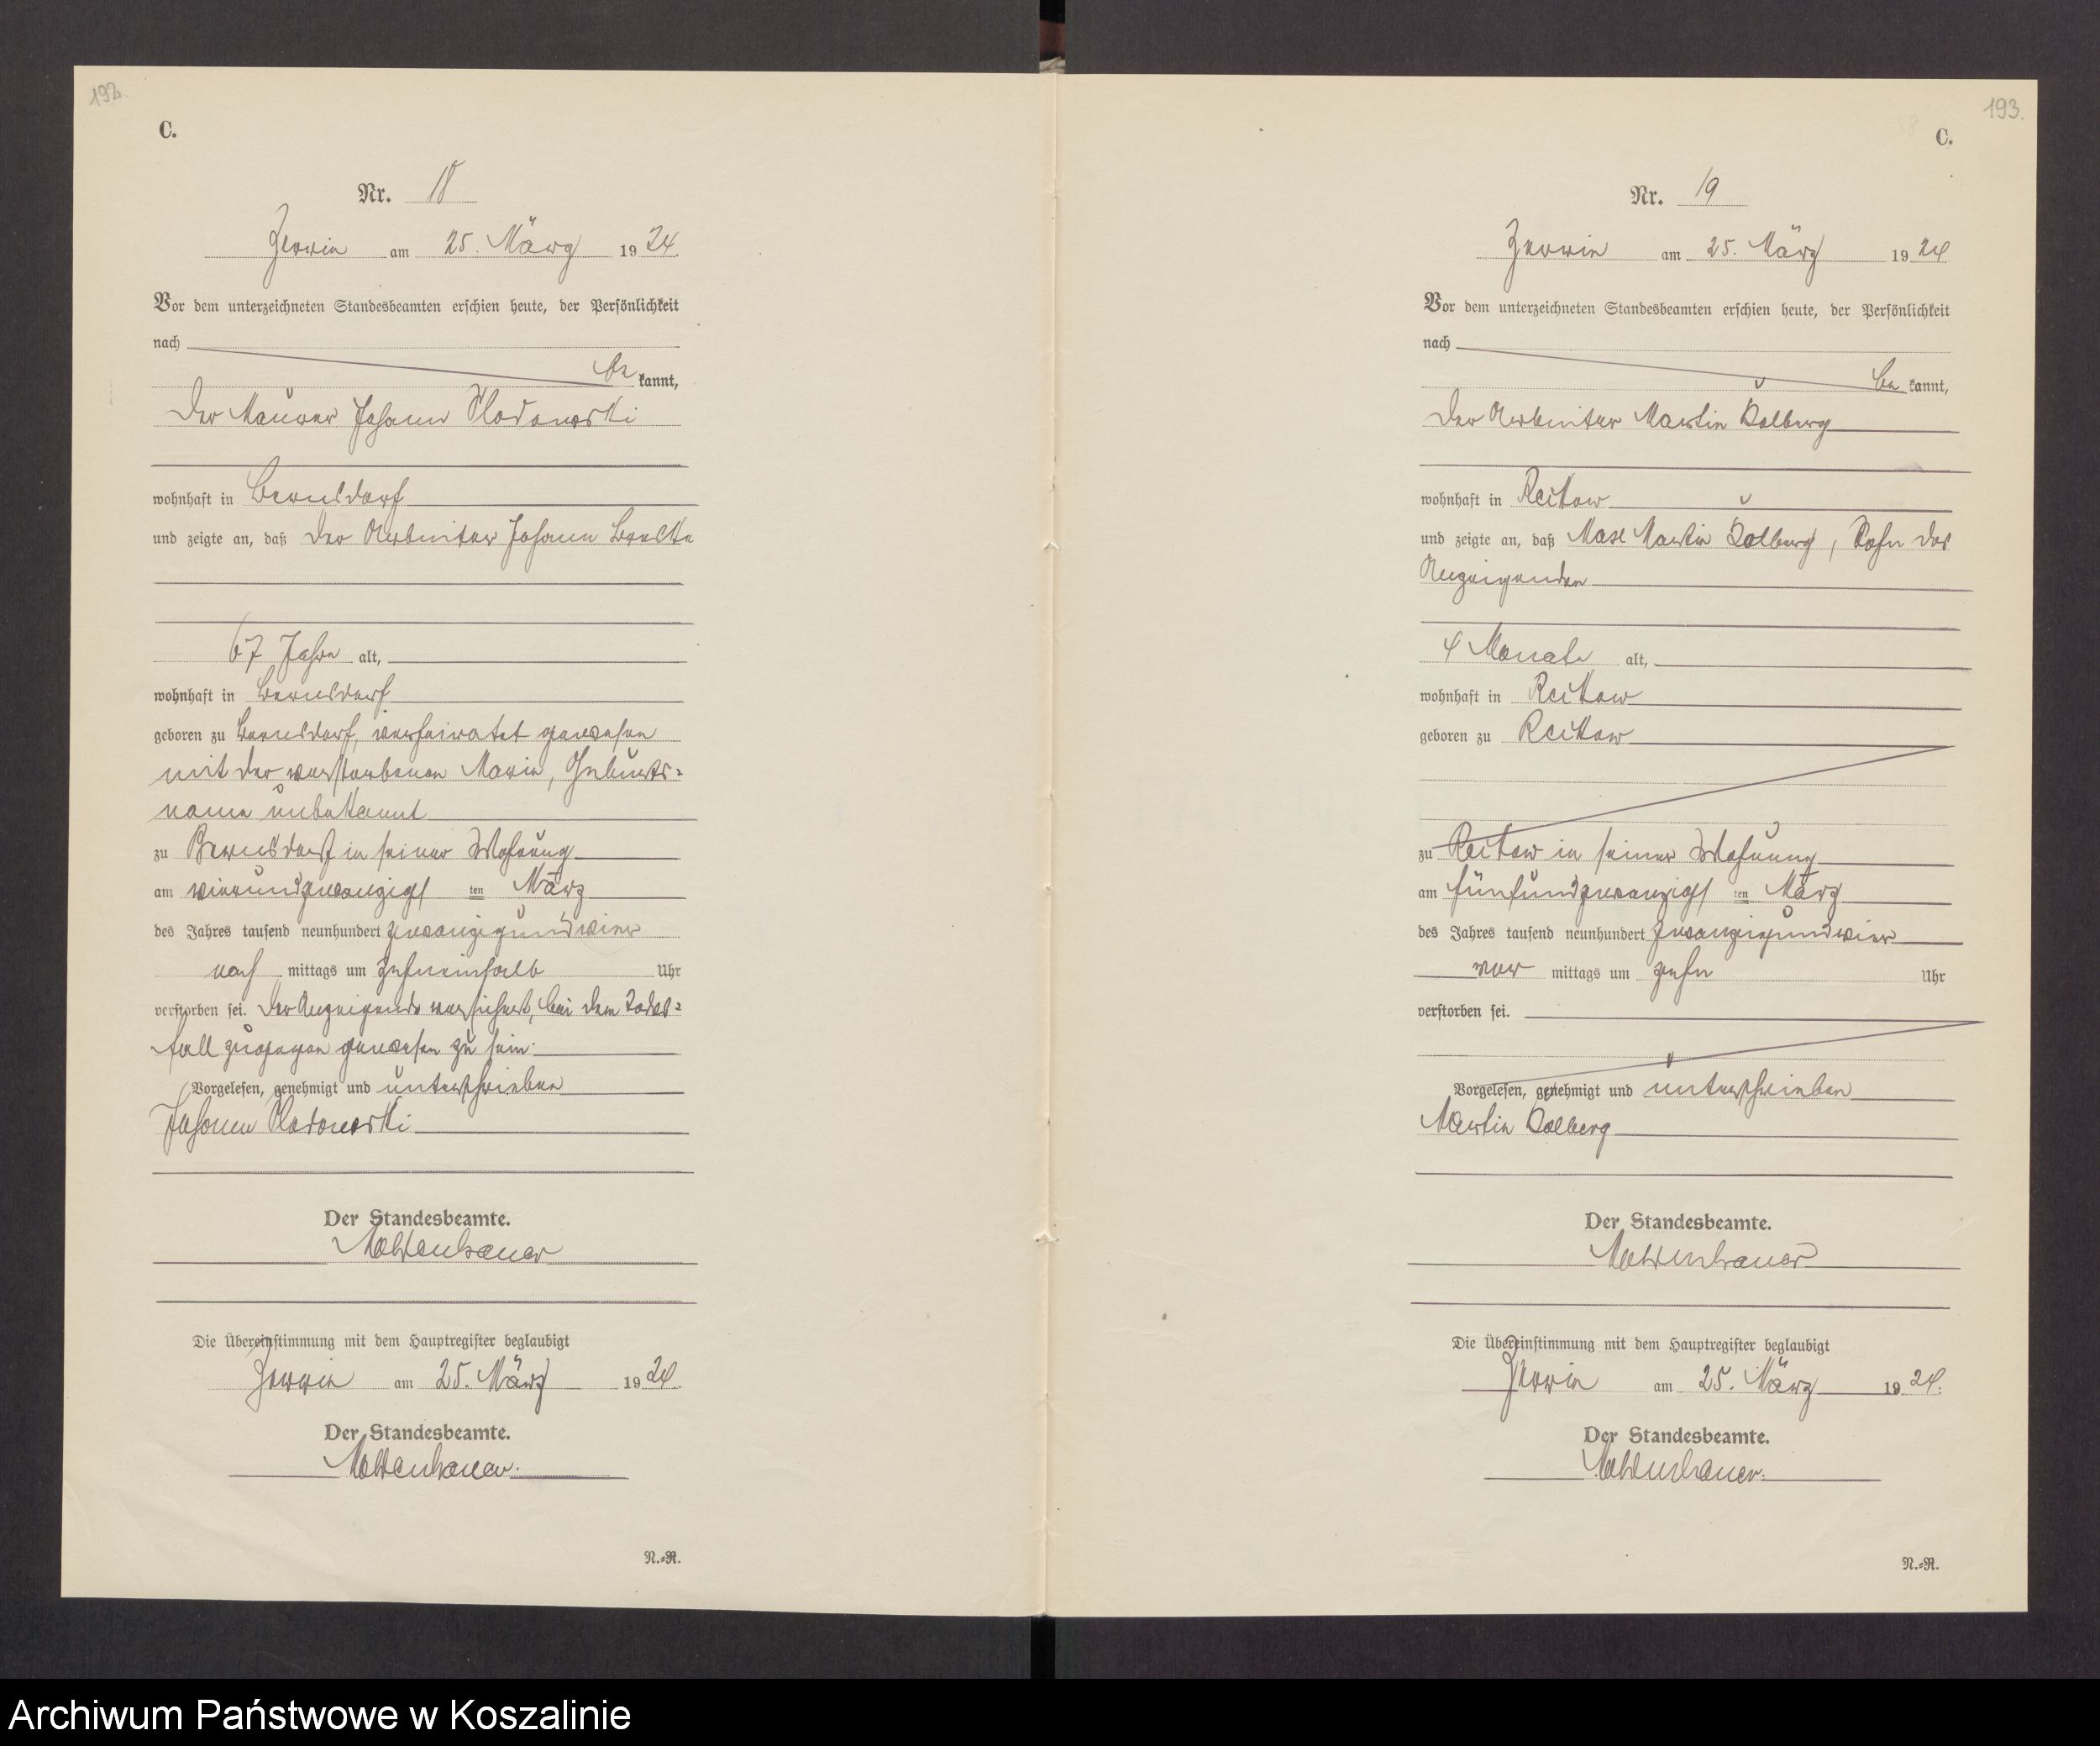 192.
C.
Nr. 18
Jerrin am 25. März 1924.
Vor dem unterzeichneten Standesbeamten erschien heute, der Persönlichkeit
nach
be kannt,
der Maurer Johann
wohnhaft in Bernsdorf
und zeigte an, daß der Arbeiter Johann
67 Jahre alt,
wohnhaft in Bernsdorf
geboren zu Bernsdorf, verheiratet gewesen
mit der verstorbenen Marie, Geburts-
name unbekannt
zu Bernsdorf in seiner Wohnung
am vierundzwanzigsten März
des Jahres tausend neunhundert zwanzigundvier
nach mittags um zehneinhalb Uhr
verstorben sei. Der Anzeigende versichert, bei dem Todes-
fall zugegen gewesen zu sein.
Vorgelesen, genehmigt und unterschrieben
Johann
Der Standesbeamte.
Die Übereinstimmung mit dem Hauptregister beglaubigt
Jerrin am 25. März 1924.
Der Standesbeamte.
N.-R.
193.
C.
Nr. 19
Jerrin am 25. März 1924
Vor dem unterzeichneten Standesbeamten erschien heute, der Persönlichkeit
nach
be kannt,
der Arbeiter Martin Dalburg
wohnhaft in Reckow
und zeigte an, daß Max Martin Dalburg, Sohn des
Anzeigenden
4 Monate alt,
wohnhaft in Reckow
geboren zu Reckow
zu Reckow in seiner Wohnung
am fünfundzwanzigsten März
des Jahres tausend neunhundert zwanzigundvier
vor mittags um zehn Uhr
verstorben sei.
Vorgelesen, genehmigt und unterschrieben
Martin
Der Standesbeamte.
Die Übereinstimmung mit dem Hauptregister beglaubigt
Jerrin am 25. März 1924.
Der Standesbeamte.
N.-R.
Archiwum Państwowe w Koszalinie